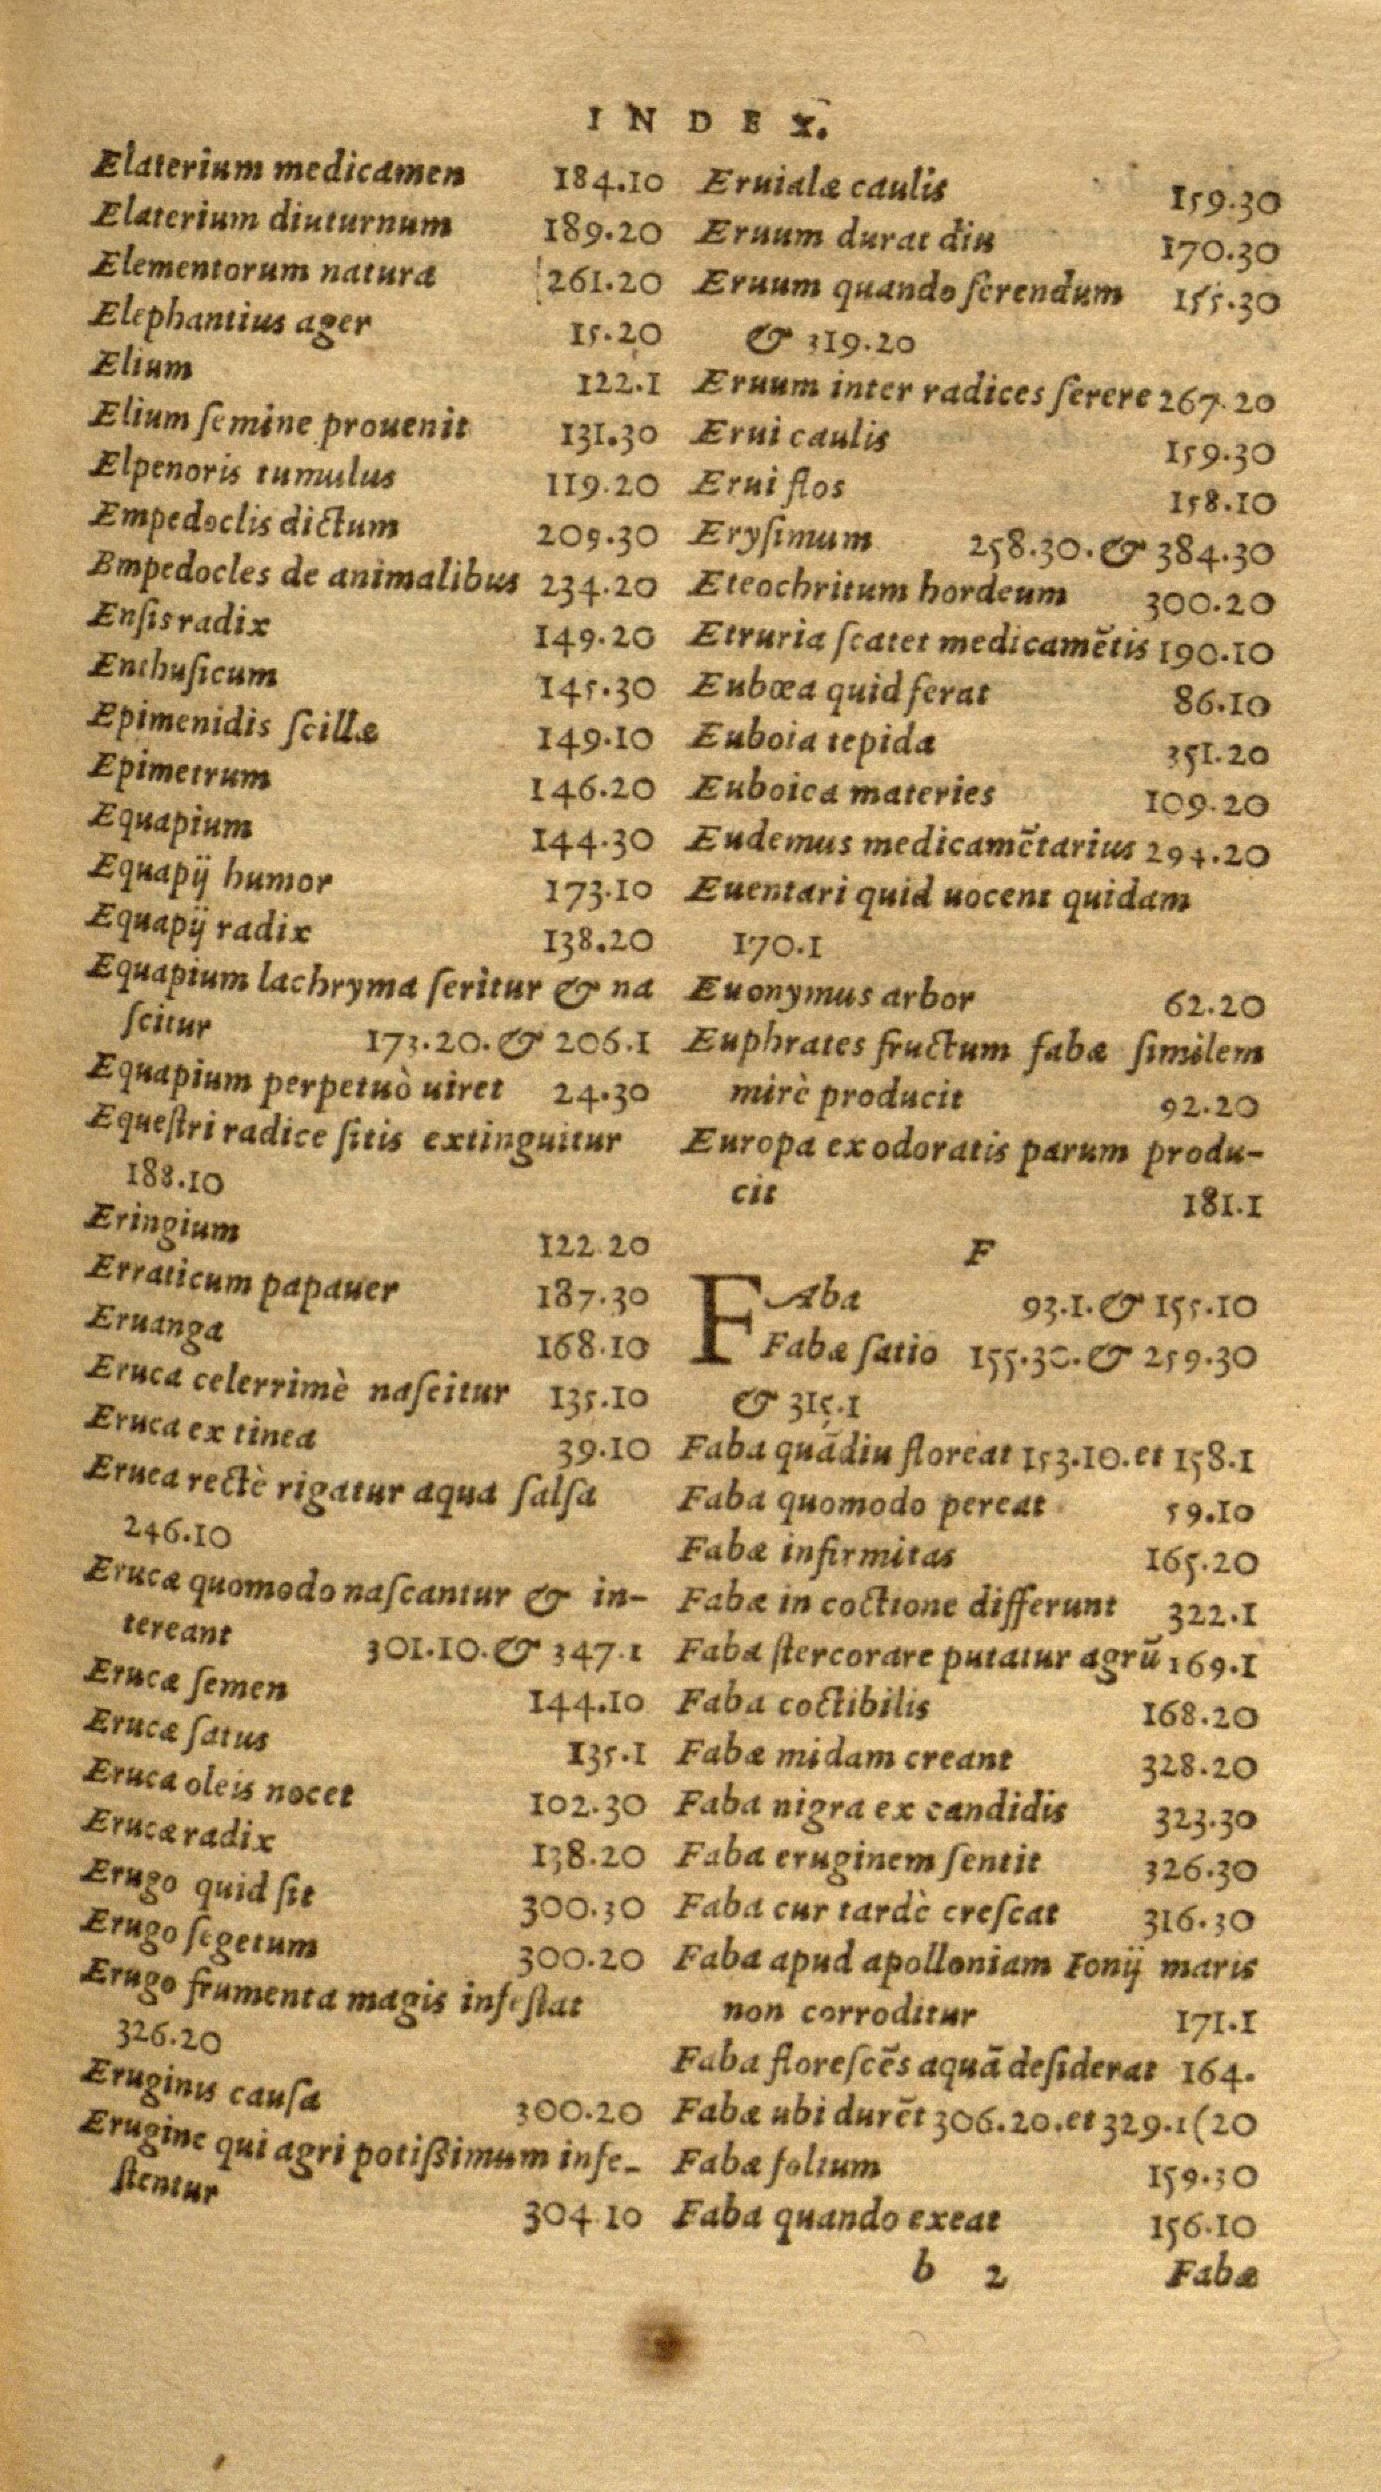 INDEX.
Elaterium medicamen 184.10
Elaterium diuturnum 189.20
Elementorum natura 261.20
Elephantius ager 15.20
Elium 122.1
Elium ſemine prouenit 131.30
Elpenoris tumulus 119.20
Empedoclis dictum 209.30
Bmpedocles de animalibus 234.20
Enſis radix 149.20
Enthuſicum 145.30
Epimenidis ſcillæ 149.10
Epimetrum 146.20
Equapium 144.30
Equapij humor 173.10
Equapij radix 138.20
Equapium lachryma ſeritur & na
ſcitur 173.20. & 206.1
Equapium perpetuò uiret 24.30
Equeſtri radice ſitis extinguitur
188.10
Eringium 122.20
Erraticum papauer 187.30
Eruanga 168.10
Eruca celerrimè naſcitur 135.10
Eruca ex tinea 39.10
Eruca rectè rigatur aqua ſalſa
246.10
Erucæ quomodo naſcantur & in-
tereant 301.10. & 347.1
Erucæ ſemen 144.10
Erucæ ſatus 135.1
Eruca oleis nocet 102.30
Erucæ radix 138.20
Erugo quid ſit 300.30
Erugo ſegetum 300.20
Erugo frumenta magis infeſtat
326.20
Eruginis cauſa 300.20
Erugine qui agri potiſsimum infe-
ſtentur 304.10
Eruialæ caulis 159.30
Eruum durat diu 170.30
Eruum quando ſerendum 155.30
& 319.20
Eruum inter radices ſerere 267.20
Erui caulis 159.30
Erui flos 158.10
Eryſimum 258.30. & 384.30
Eteochritum hordeum 300.20
Etruria ſcatet medicamētis 190.10
Eubœa quid ferat 86.10
Euboia tepida 351.20
Euboica materies 109.20
Eudemus medicamētarius 294.20
Euentari quid uocent quidam
170.1
Euonymus arbor 62.20
Euphrates fructum fabæ ſimilem
mirè producit 92.20
Europa ex odoratis parum produ-
cit 181.1
F
FAba 93.1. & 155.10
Fabæ ſatio 155.30. & 259.30
& 315.1
Faba quādiu floreat 153.10. et 158.1
Faba quomodo pereat 59.10
Fabæ infirmitas 165.20
Fabæ in coctione differunt 322.1
Faba ſtercorare putatur agrū 169.1
Faba coctibilis 168.20
Fabæ midam creant 328.20
Faba nigra ex candidis 323.30
Faba eruginem ſentit 326.30
Faba cur tardè creſcat 316.30
Faba apud apolloniam Ionij maris
non corroditur 171.1
Faba floreſcēs aquā deſiderat 164.
Fabæ ubi durēt 306.20. et 329.1 (20
Fabæ folium 159.30
Faba quando exeat 156.10
b 2 Fabæ